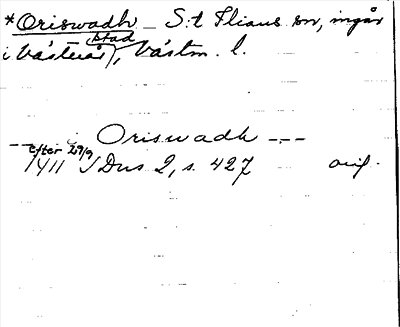 *Oriswadh – S:t Ilians sn, ingår
i Västerås stad, Västm. l.
-- Oriswadh ---
efter 29/9
1411 SDns 2, s. 427 orig.